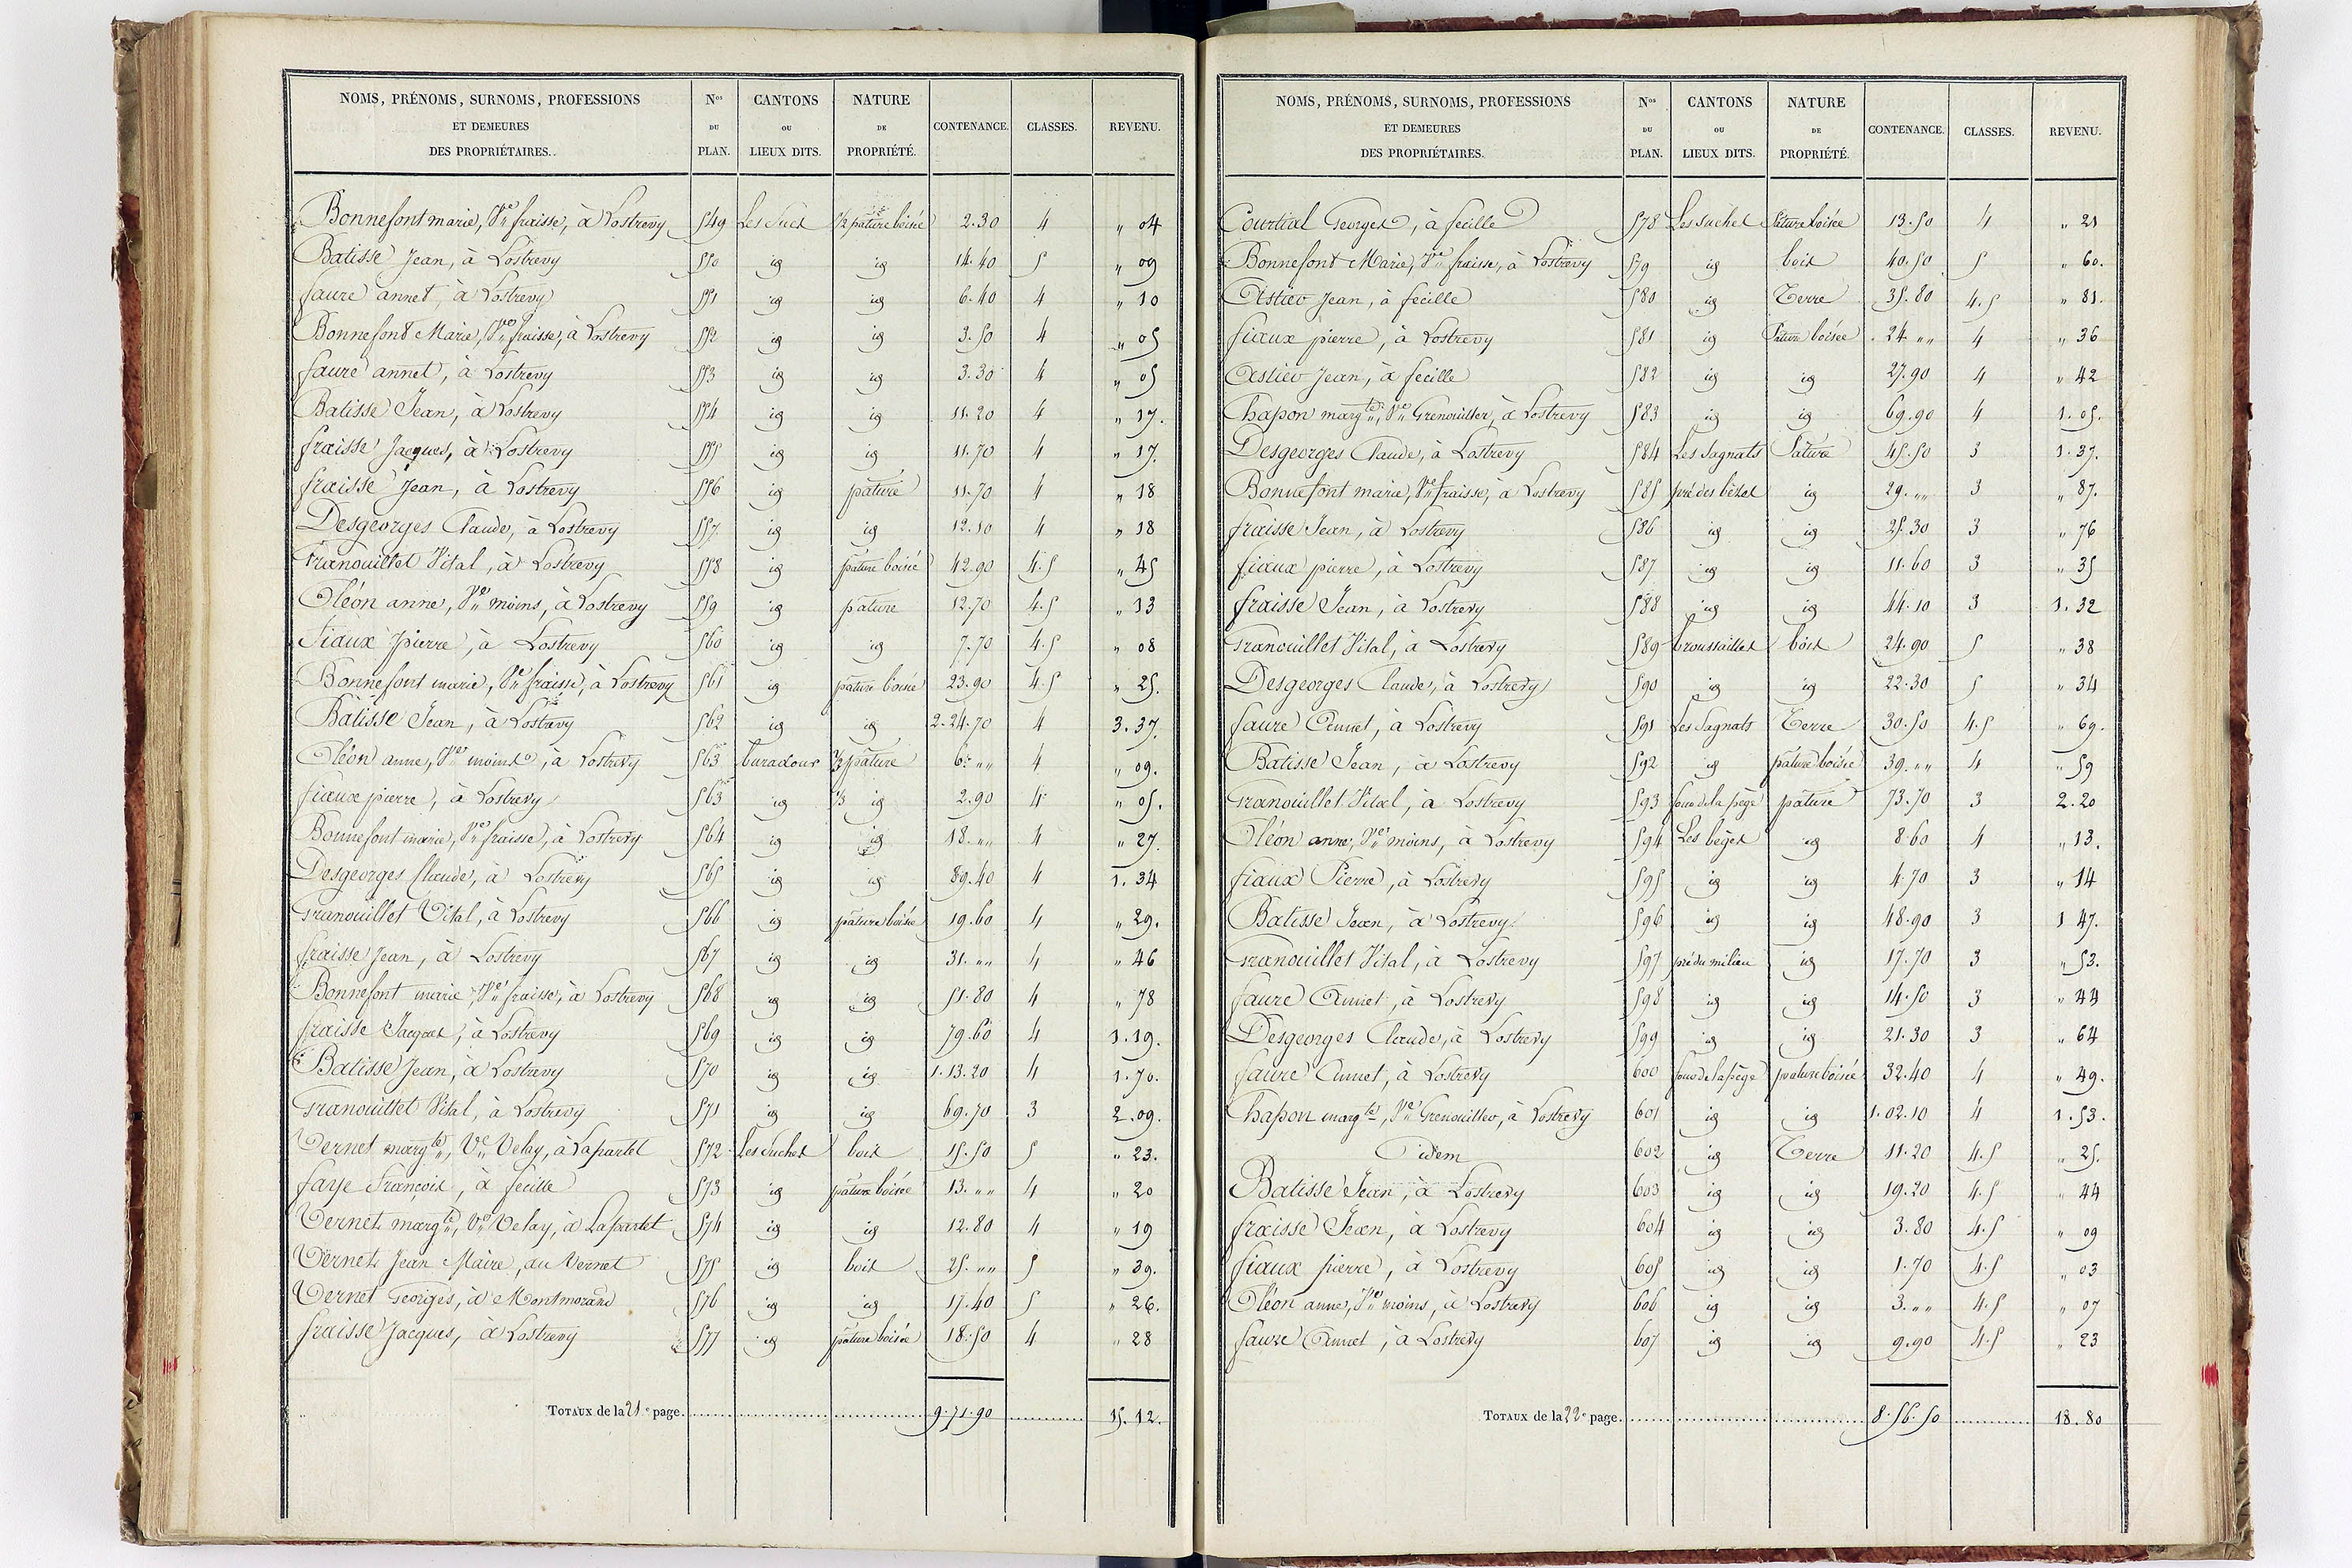 NOMS, PRÉNOMS, SURNOMS, PROFESSIONS ET DEMEURES DES PROPRIÉTAIRES. Nos DU PLAN. CANTONS OU LIEUX DITS. NATURE DE PROPRIÉTÉ. CONTENANCE. CLASSES. REVENU.
Bonnefont marie, Ve fraisse, à Lostrevy 549 Les Suchs 1/2 pature boisée 2.30 4 „ 04
Batisse Jean, à Lostrevy 550 id id 14.40 5 „ 09
faure annet, à Lostrevy 551 id id 6.40 4 „ 10
Bonnefont Marie, Ve fraisse, à Lostrevy 552 id id 3.50 4 „ 05
faure annet, à Lostrevy 553 id id 3.30 4 „ 05
Batisse Jean, à Lostrevy 554 id id 11.20 4 „ 17.
fraisse Jacques, à Lostrevy 555 id id 11.70 4 „ 17.
fraisse Jean, à Lostrevy 556 id pature 11.70 4 „ 18
Desgeorges Claude, à Lostrevy 557 id id 12.10 4 „ 18
Granouillet Vital, à Lostrevy 558 id pature boisée 42.90 4.5 „ 45
Oléon anne, Ve moins, à Lostrevy 559 id pature 12.70 4.5 „ 13
fiaux pierre, à Lostrevy 560 id id 7.70 4.5 „ 08
Bonnefont marie, Ve fraisse, à Lostrevy 561 id pature boisée 23.90 4.5 „ 25.
Batisse Jean, à Lostrevy 562 id id 2.24.70 4 3.37.
Oléon anne, Ve moins, à Lostrevy 563 buradour 2/3 pature 6. „„ 4 „ 09.
fiaux pierre, à Lostrevy 563 id 1/3 id 2.90 4 „ 05.
Bonnefont marie, Ve fraisse, à Lostrevy 564 id id 18. „„ 4 „ 27.
Desgeorges Claude, à Lostrevy 565 id id 89.40 4 1.34
Granouillet Vital, à Lostrevy 566 id pature boisée 19.60 4 „ 29.
fraisse Jean, à Lostrevy 567 id id 31. „„ 4 „ 46
Bonnefont marie, Ve fraisse, à Lostrevy 568 id id 51.80 4 „ 78
fraisse Jacques, à Lostrevy 569 id id 79.60 4 1.19.
Batisse Jean, à Lostrevy 570 id id 1.13.20 4 1.70.
Granouillet Vital, à Lostrevy 571 id id 69.70 3 2.09.
Vernet margte, Ve Velay, à Lapartel 572 Les Suchet bois 15.50 5 „ 23.
faye François, à fecille 573 id pature boisée 13. „„ 4 „ 20
Vernet margte, Ve Velay, à Lapartel 574 id id 12.80 4 „ 19
Vernet Jean Maire, au Vernet 575 id bois 25. „„ 5 „ 39.
Vernet Georges, à Montmorand 576 id id 17.40 5 „ 26.
fraisse Jacques, à Lostrevy 577 id pature boisée 18.50 4 „ 28
TOTAUX de la 21e page. 9.71.90 15.12.
NOMS, PRÉNOMS, SURNOMS, PROFESSIONS ET DEMEURES DES PROPRIÉTAIRES. Nos DU PLAN. CANTONS OU LIEUX DITS. NATURE DE PROPRIÉTÉ. CONTENANCE. CLASSES. REVENU.
Courtial Georges, à fecille 578 Les suchet Pature boisée 13.50 4 „ 21
Bonnefont Marie, Ve fraisse, à Lostrevy 579 id bois 40.50 5 „ 60.
Astier Jean, à fecille 580 id Terre 35.80 4.5 „ 81.
fiaux pierre, à Lostrevy 581 id Pature boisée 24 „„ 4 „ 36
Astier Jean, à fecille 582 id id 27.90 4 „ 42
Chapon margte, Ve Grenouiller, à Lostrevy 583 id id 69.90 4 1.05.
Desgeorges Claude, à Lostrevy 584 Les Sagnats Pature 45.50 3 1.37.
Bonnefont marie, Ve fraisse, à Lostrevy 585 pré des bêtes id 29. „„ 3 „ 87.
fraisse Jean, à Lostrevy 586 id id 25.30 3 „ 76
fiaux pierre, à Lostrevy 587 id id 11.60 3 „ 35
fraisse Jean, à Lostrevy 588 id id 44.10 3 1.32
Granouillet Vital, à Lostrevy 589 broussailles bois 24.90 5 „ 38
Desgeorges Claude, à Lostrevy 590 id id 22.30 5 „ 34
faure Annet, à Lostrevy 591 Les Sagnats Terre 30.50 4.5 „ 69.
Batisse Jean, à Lostrevy 592 id pature boisée 39. „„ 4 „ 59
Granouillet Vital, à Lostrevy 593 sous la piège pature 73.70 3 2.20
Oléon anne, Ve moins, à Lostrevy 594 Les bèges id 8.60 4 „ 13.
fiaux Pierre, à Lostrevy 595 id id 4.70 3 „ 14
Batisse Jean, à Lostrevy 596 id id 48.90 3 1 47.
Granouillet Vital, à Lostrevy 597 pré du milieu id 17.70 3 „ 53.
faure Annet, à Lostrevy 598 id id 14.50 3 „ 44
Desgeorges Claude, à Lostrevy 599 id id 21.30 3 „ 64
faure Annet, à Lostrevy 600 pature boisée 32.40 4 „ 49.
Chapon margte, Ve Grenouiller, à Lostrevy 601 id id 1.02.10 4 1.53.
idem 602 id Terre 11.20 4.5 „ 25.
Batisse Jean, à Lostrevy 603 id id 19.20 4.5 „ 44
fraisse Jean, à Lostrevy 604 id id 3.80 4.5 „ 09
fiaux pierre, à Lostrevy 605 id id 1.70 4.5 „ 03
Oléon anne, Ve moins, à Lostrevy 606 id id 3. „„ 4.5 „ 07
faure Annet, à Lostrevy 607 id id 9.90 4.5 „ 23
TOTAUX de la 22e page. 8.56.50 18.80